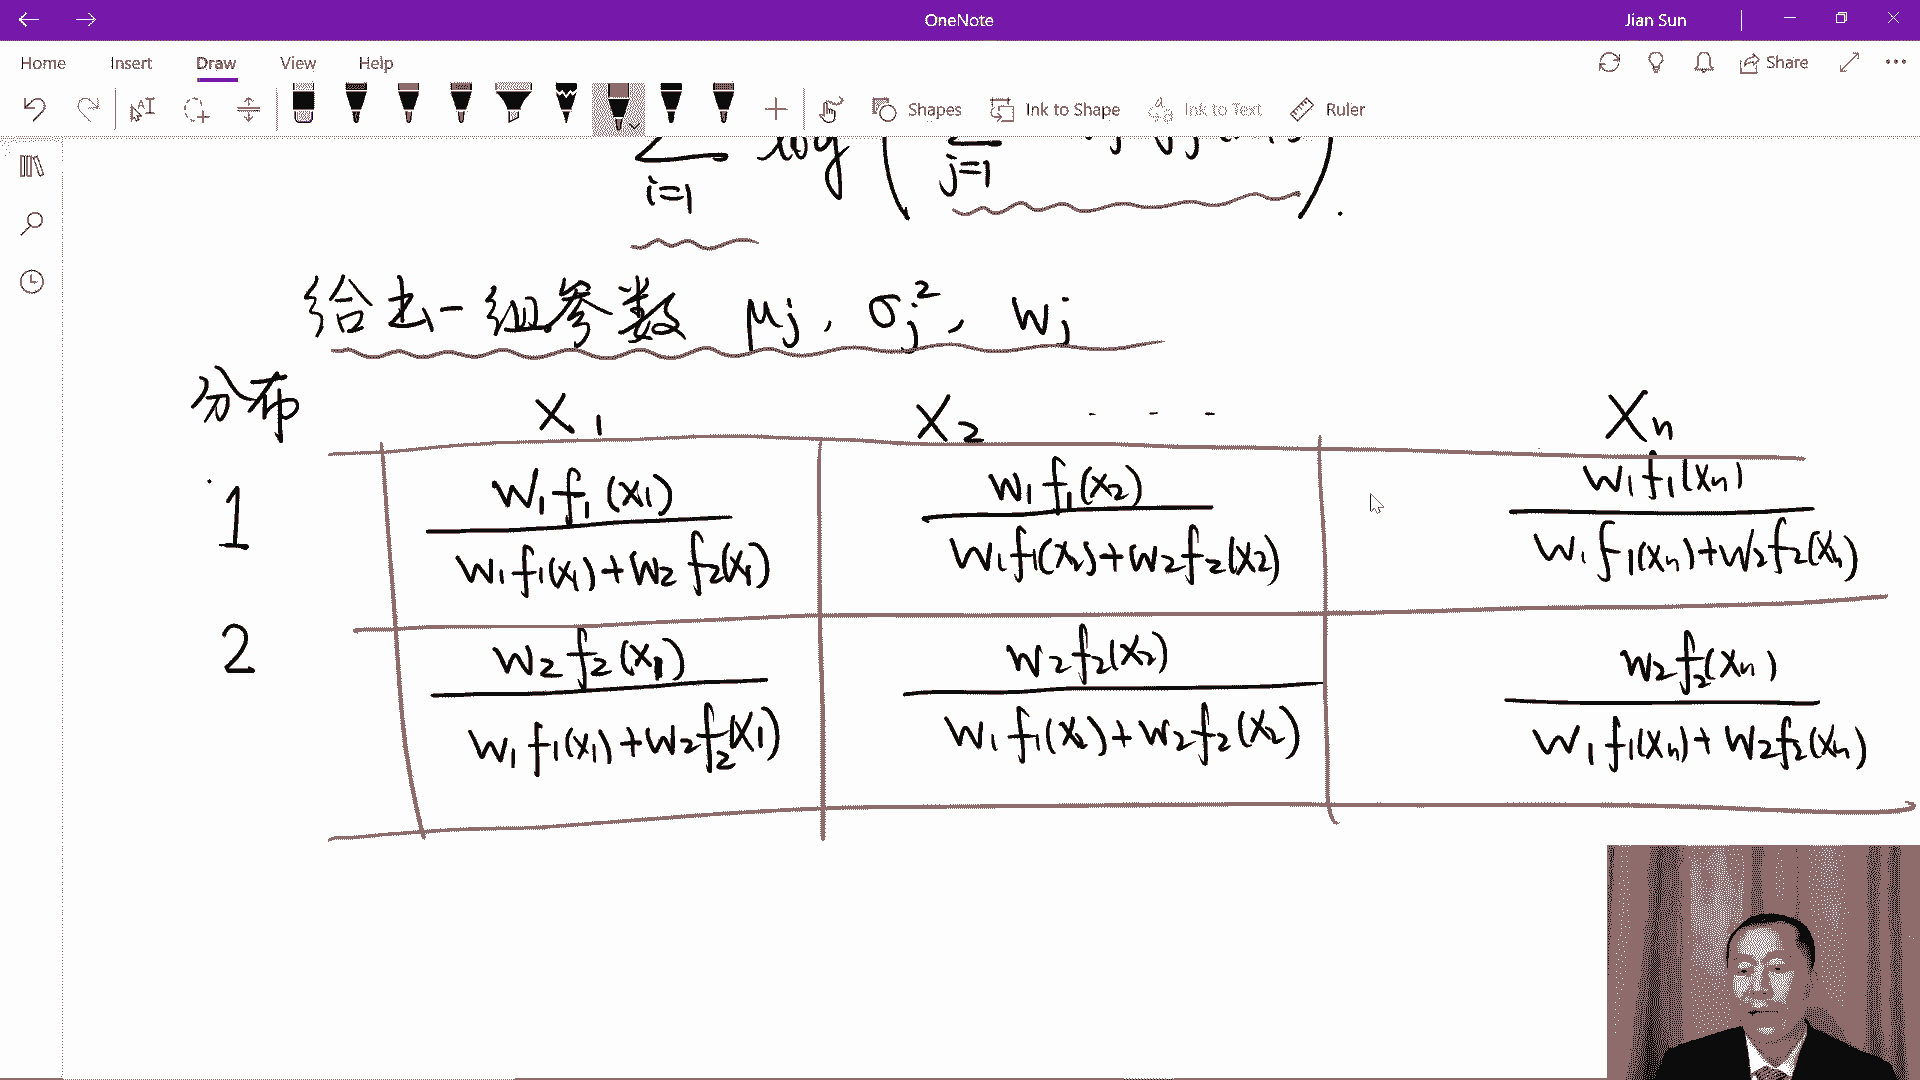 OneNote
Jian Sun
Home Insert Draw View Help
Share
Shapes Ink to Shape Ink to Text Ruler
Σ log ( Σ
i=1 j=1 ) .
给出一组参数 μj , σj² , wj
分布 X1 X2 - - - Xn
1 W1f1(x1) W1f1(x2) W1f1(xn)
W1f1(x1)+W2f2(x1) W1f1(x2)+W2f2(x2) W1f1(xn)+W2f2(xn)
2 W2f2(x1) W2f2(x2) W2f2(xn)
W1f1(x1)+W2f2(x1) W1f1(x2)+W2f2(x2) W1f1(xn)+W2f2(xn)